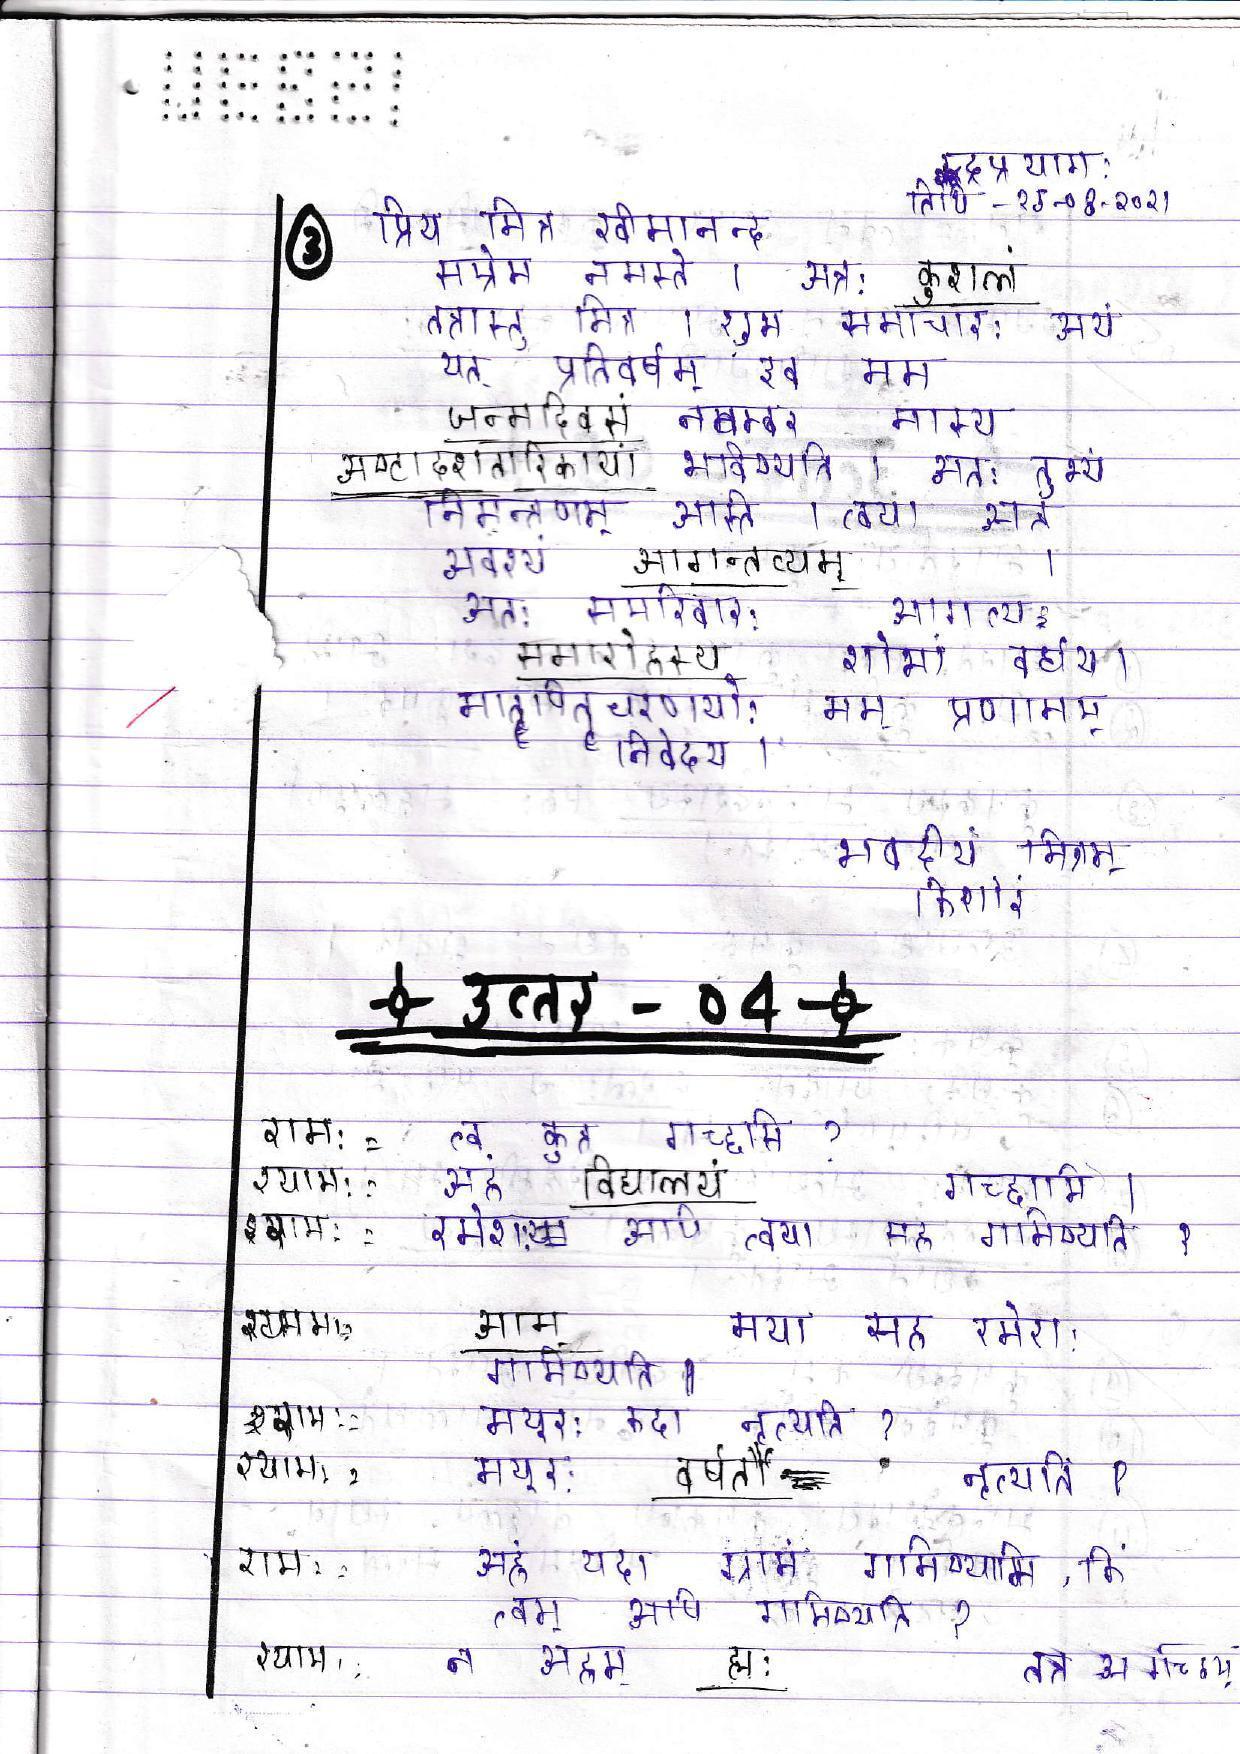 रुद्रप्रयागः
तिथि - 25-08-2021
③ प्रिय मित्र खीमानन्द
सप्रेम नमस्ते । अत्रः कुशलं
तत्रास्तु मित्र । शुभ समाचारः अयं
यत् प्रतिवर्षम् इव मम
जन्मदिवसं नवम्बर मास्य
अष्टादशतारिकायां भविष्यति । अतः तुभ्यं
निमन्त्रणम् अस्ति । त्वया अत्र
अवश्यं आगन्तव्यम् ।
अतः सपरिवारः आगत्य
समारोहस्य शोभां वर्धय ।
मातृपितृचरणयोः मम् प्रणामम्
निवेदय ।
भवदीयं मित्रम्
किशोरं
उत्तर - 04
रामः := त्वं कुत्र गच्छसि ?
श्यामः := अहं विद्यालयं गच्छामि ।
रामः := रमेशः अपि त्वया सह गमिष्यति ?
श्यामः := आम् मया सह रमेशः
गमिष्यति ।
रामः := मयूरः कदा नृत्यति ?
श्यामः := मयूरः वर्षतौ नृत्यति ।
रामः := अहं यदा ग्रामं गमिष्यामि , किं
त्वम् अपि गमिष्यति ?
श्यामः := न अहम् ह्यः तत्र अगच्छम्